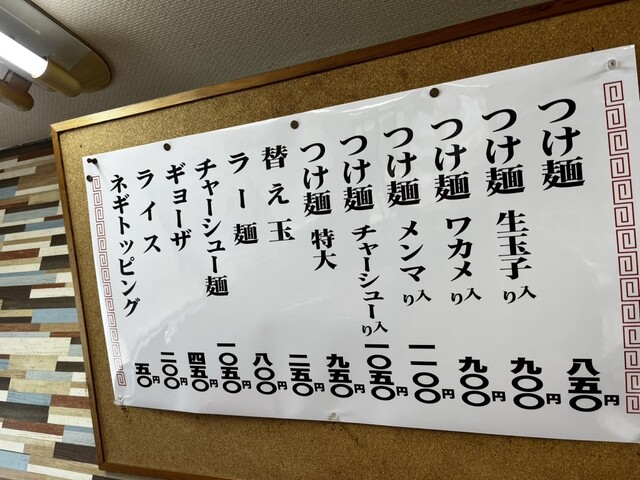 つけ麺 八五〇円
つけ麺 生玉子入り 九〇〇円
つけ麺 ワカメ入り 九〇〇円
つけ麺 メンマ入り 一一〇〇円
つけ麺 チャーシュー入り 一〇五〇円
つけ麺 特大 九五〇円
替え玉 二五〇円
ラー麺 八〇〇円
チャーシュー麺 一〇五〇円
ギョーザ 四五〇円
ライス 二〇〇円
ネギトッピング 五〇円